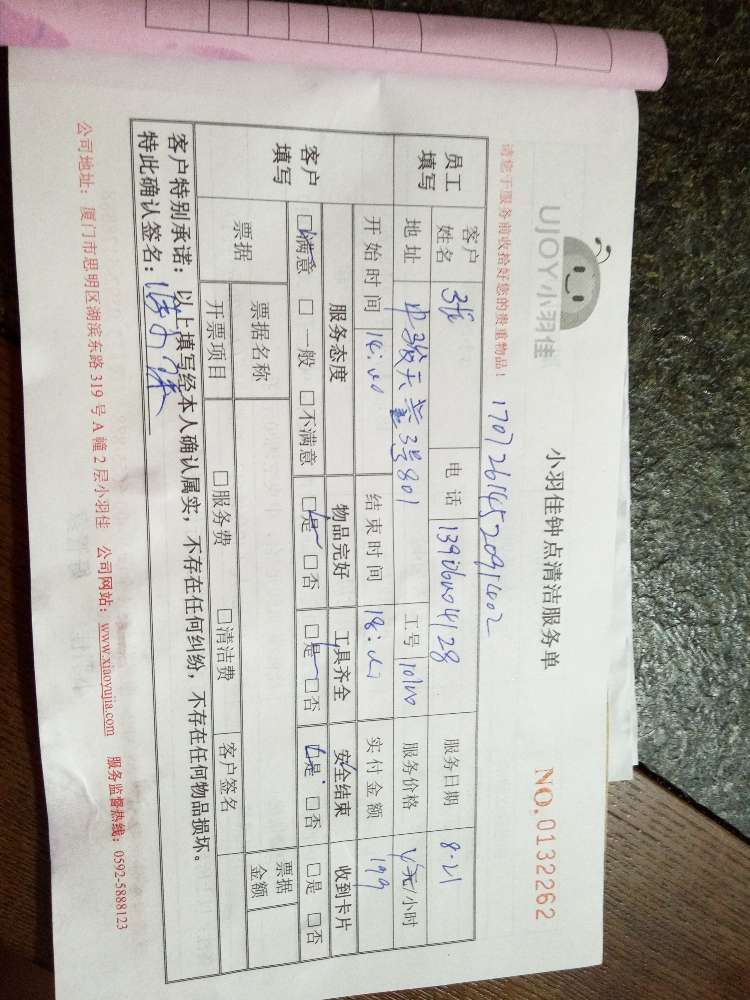 UJOY小羽佳
小羽佳钟点清洁服务单
NO.0132262
请您于服务前收拾好您的贵重物品！
员工填写 客户姓名 电话 服务日期 8.21
地址 3号801 工号 服务价格 元/小时
开始时间 14:00 结束时间 18:00 实付金额 199
客户填写 服务态度 物品完好 工具齐全 安全结束 收到卡片
□满意 □一般 □不满意 □是 □否 □是 □否 □是 □否 □是 □否
票据 票据名称 票据金额
开票项目 □服务费 □清洁费 客户签名
客户特别承诺：以上填写经本人确认属实，不存在任何纠纷，不存在任何物品损坏。
特此确认签名：
公司地址：厦门市思明区湖滨东路319号A幢2层小羽佳 公司网站：www.xiaoyujia.com 服务监督热线：0592-5888123